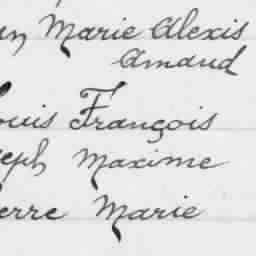 Marie Alexis
Amand
Louis François
Joseph Maxime
Pierre Marie